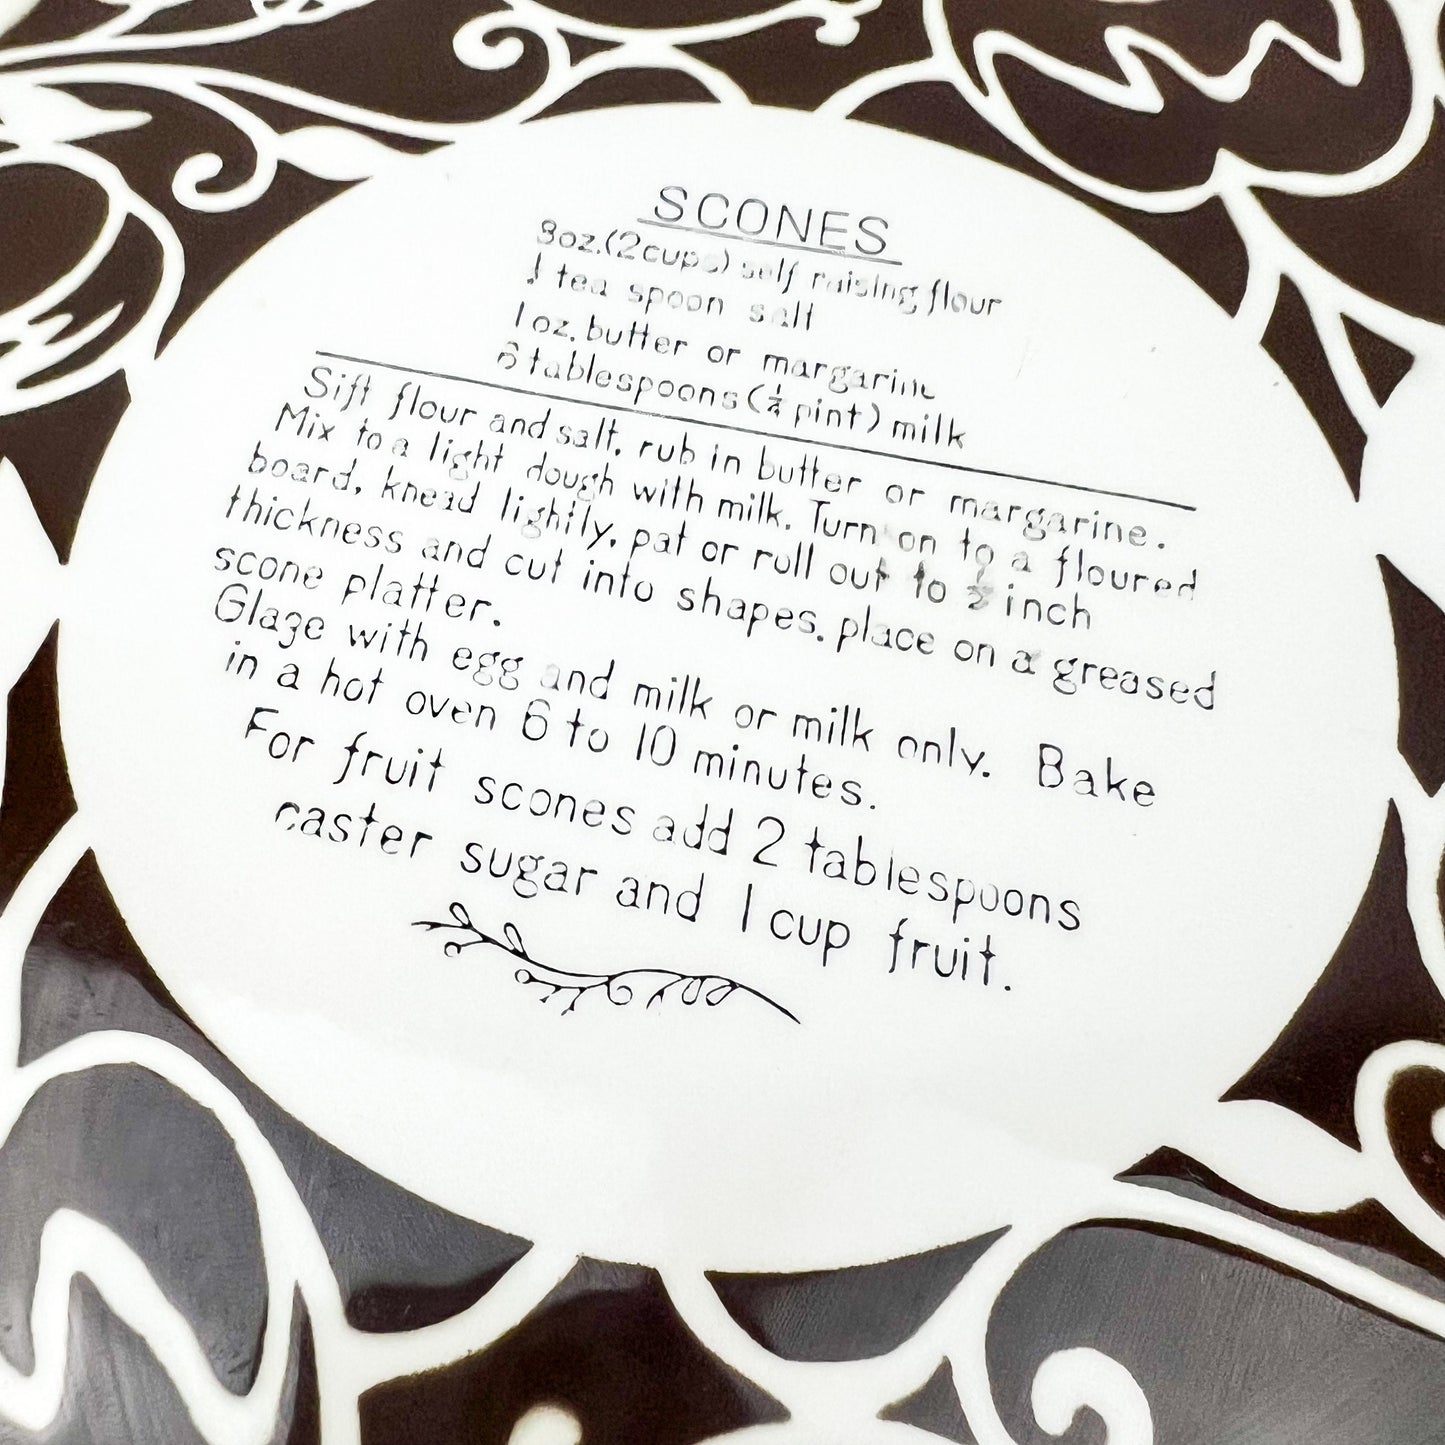 SCONES
8oz.(2cups) self raising flour
tea spoon salt
1oz. butter or margarine
6 tablespoons (¼ pint) milk
Sift flour and salt, rub in butter or margarine.
Mix to a light dough with milk. Turn on to a floured
board, knead lightly, pat or roll out to ½ inch
thickness and cut into shapes. place on a greased
scone platter.
Glaze with egg and milk or milk only. Bake
in a hot oven 6 to 10 minutes.
For fruit scones add 2 tablespoons
caster sugar and 1 cup fruit.